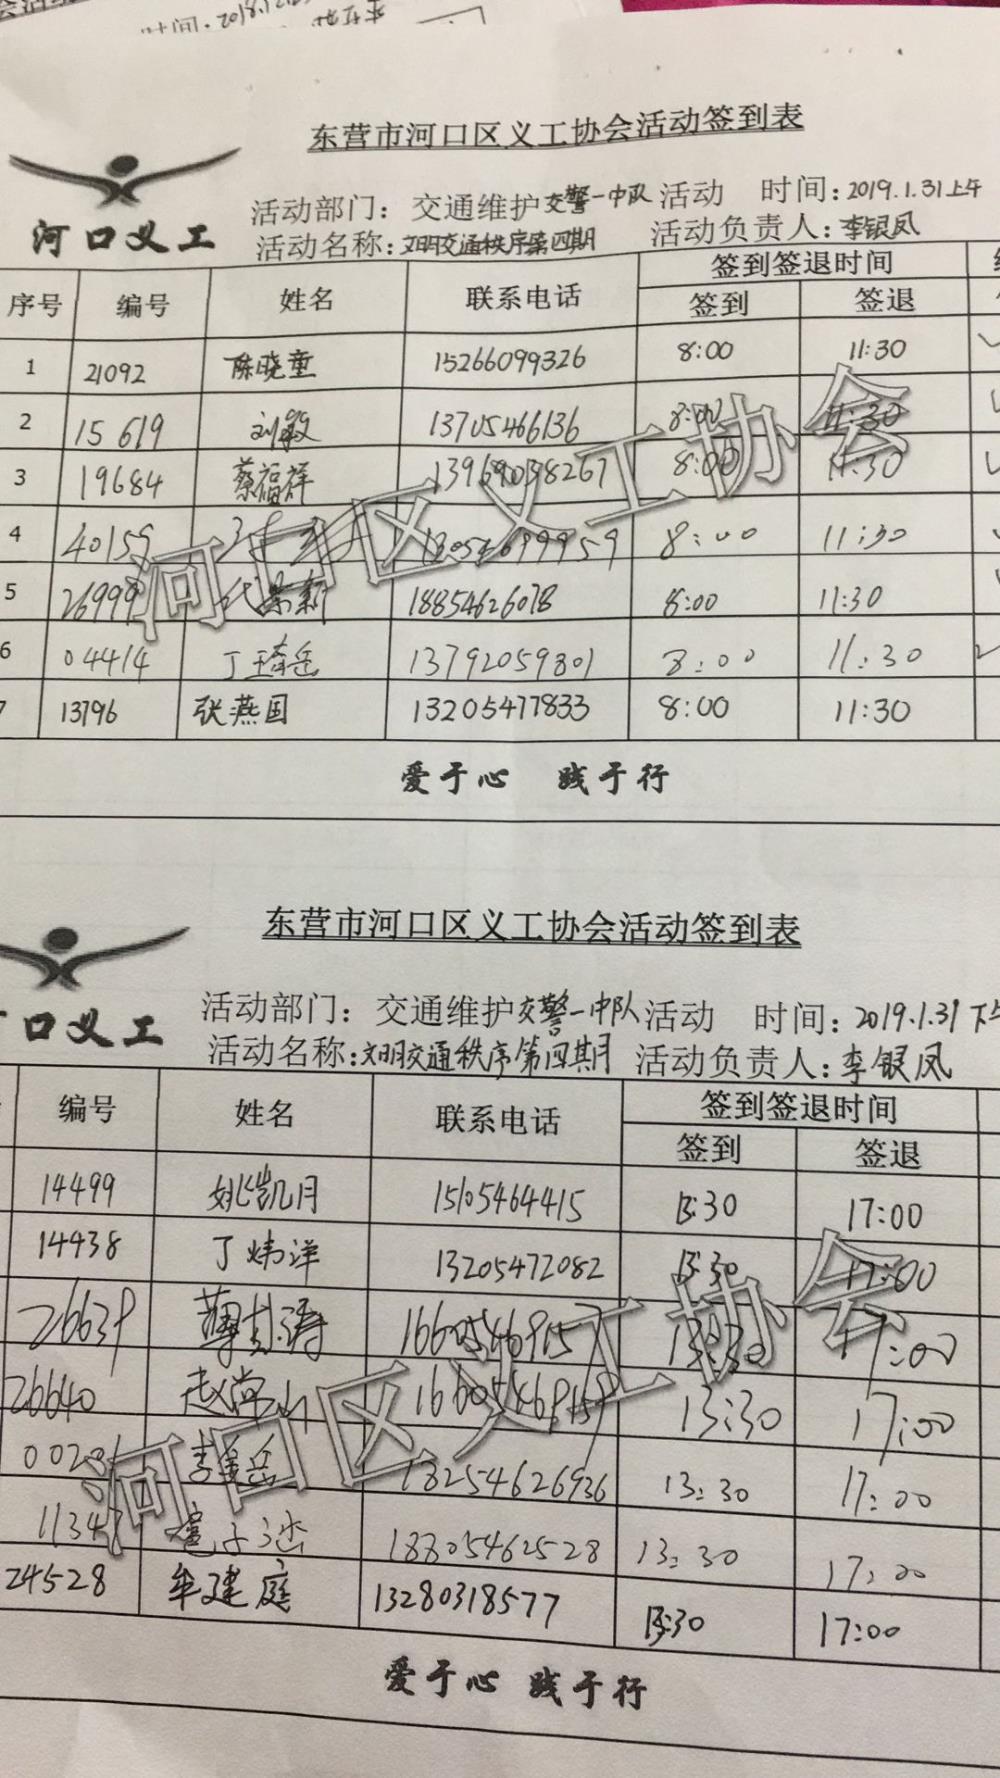 时间：2018.12
东营市河口区义工协会活动签到表
河口义工
活动部门：交通维护交警一中队活动 时间：2019.1.31上午
活动名称：文明交通秩序第四期 活动负责人：李银凤
序号 编号 姓名 联系电话 签到签退时间
签到 签退
1 21092 陈晓童 15266099326 8:00 11:30
2 15619 刘毅 13705466136 8:00 11:30
3 19684 蔡福祥 13969038267 8:00 11:30
4 40159 13054699959 8:00 11:30
5 26999 代景新 18854626078 8:00 11:30
6 04414 丁琦岳 13792059801 8:00 11:30
7 13796 张燕国 13205477833 8:00 11:30
河口区义工协会
爱于心 践于行
东营市河口区义工协会活动签到表
口义工
活动部门：交通维护交警一中队活动 时间：2019.1.31下午
活动名称：文明交通秩序第四期 活动负责人：李银凤
编号 姓名 联系电话 签到签退时间
签到 签退
14499 姚凯月 15105464415 13:30 17:00
14438 丁炜洋 13205472082 13:30 17:00
26639 薄其涛 16605469157 13:30 17:00
26640 赵常山 16605469159 13:30 17:00
0020 李 岳 18254626936 13:30 17:00
1134 18805462528 13:30 17:00
24528 牟建庭 13280318577 13:30 17:00
河口区义工协会
爱于心 践于行